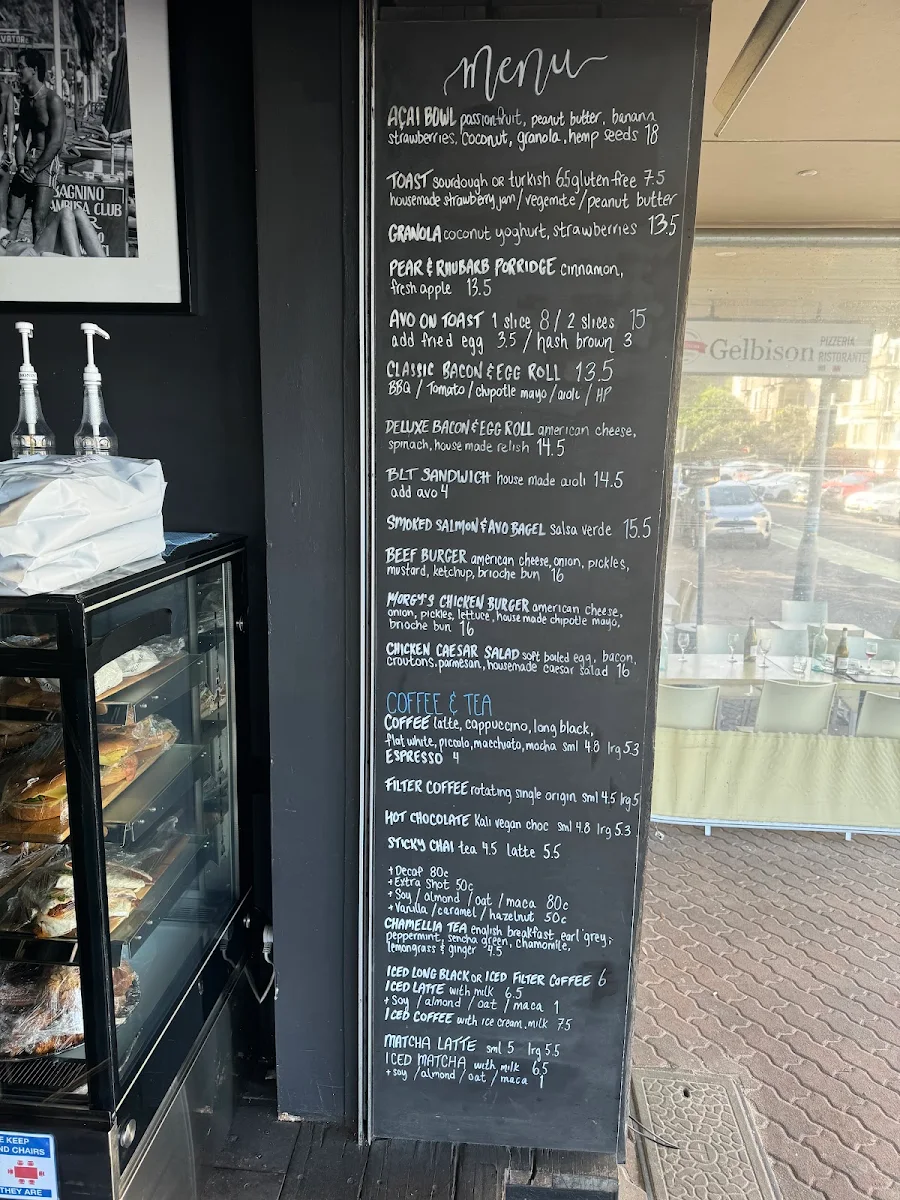 menu
AÇAI BOWL passionfruit, peanut butter, banana
strawberries, coconut, granola, hemp seeds 18
TOAST sourdough OR turkish 6.5 gluten-free 7.5
housemade strawberry jam / vegemite / peanut butter
GRANOLA coconut yoghurt, strawberries 13.5
PEAR & RHUBARB PORRIDGE cinnamon,
fresh apple 13.5
AVO ON TOAST 1 slice 8 / 2 slices 15
add fried egg 3.5 / hash brown 3
CLASSIC BACON & EGG ROLL 13.5
BBQ / Tomato / chipotle mayo / aioli / HP
DELUXE BACON & EGG ROLL american cheese,
spinach, house made relish 14.5
BLT SANDWICH house made aioli 14.5
add avo 4
SMOKED SALMON & AVO BAGEL salsa verde 15.5
BEEF BURGER american cheese, onion, pickles,
mustard, ketchup, brioche bun 16
MORGY'S CHICKEN BURGER american cheese,
onion, pickles, lettuce, house made chipotle mayo,
brioche bun 16
CHICKEN CAESAR SALAD soft boiled egg, bacon,
croutons, parmesan, housemade caesar salad 16
COFFEE & TEA
COFFEE latte, cappuccino, long black,
flat white, piccolo, macchiato, mocha sml 4.8 lrg 5.3
ESPRESSO 4
FILTER COFFEE rotating single origin sml 4.5 lrg 5
HOT CHOCOLATE Kali vegan choc sml 4.8 lrg 5.3
STICKY CHAI tea 4.5 latte 5.5
+ Decaf 80c
+ Extra Shot 50c
+ Soy / almond / oat / maca 80c
+ Vanilla / caramel / hazelnut 50c
CHAMELLIA TEA english breakfast, earl grey,
peppermint, sencha green, chamomile,
lemongrass & ginger 4.5
ICED LONG BLACK OR ICED FILTER COFFEE 6
ICED LATTE with milk 6.5
+ Soy / almond / oat / maca 1
ICED COFFEE with ice cream, milk 7.5
MATCHA LATTE sml 5 lrg 5.5
ICED MATCHA with milk 6.5
+ soy / almond / oat / maca 1
Gelbison PIZZERIA
RISTORANTE
BAGNINO
CLUB
KEEP
CHAIRS
THEY ARE